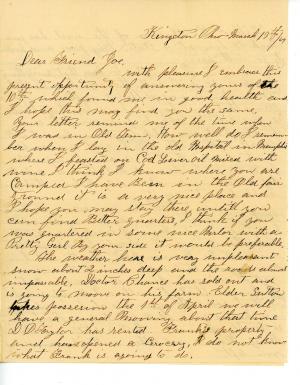 Kingston Ohio March 19th/64
Dear Friend Joe.
with pleasure I embrace this
present opportunity of answering yours of the
10th which found me in good health and
I hope this may find you the same
Your letter reminds me of the time when
I was in Old Tenn. How well do I remem-
ber when I lay in the old Hospital in Memphis
where I feasted on Cod Liver Oil mixed with
wine I think I know where you are
Camped I have been in the Old fair
Ground it is a very nice place and
I hope you may stay there until you
can find Better quarters, I think if you
was quartered in some nice Parlor with a
Pretty Girl By your side it would be preferable.
The weather here is very unpleasant
snow about 2 inches deep and the roads almost
impassable, Doctor Chances has sold out and
is going to move on his farm Elder Sutton
takes possession the 1st of April we will
have a general Moving about that time
D D Taylor has rented Franks property
and has opened a Grocery, I do not know
what Frank is agoing to do.